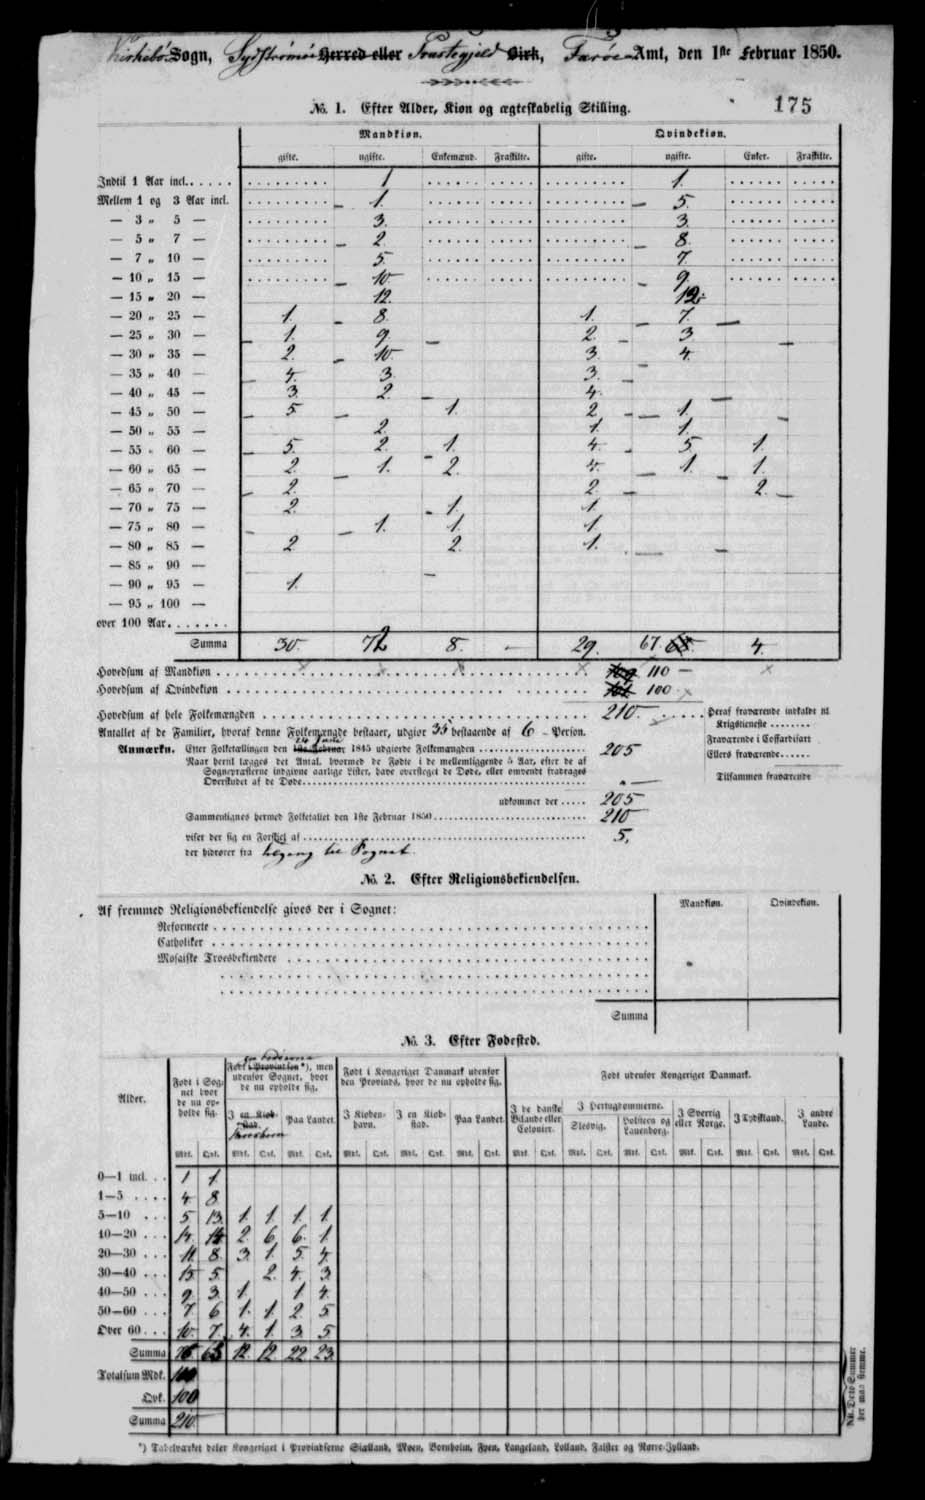 Kirkebø Sogn, Sydstrømø Herred eller Præstegjeld Birk, Færøe Amt, den 1ste Februar 1850.
175
No. 1. Efter Alder, Kiøn og ægteskabelig Stilling.
Mandkiøn. Qvindekiøn.
gifte. ugifte. Enkemænd. Fraskilte. gifte. ugifte. Enker. Fraskilte.
Indtil 1 Aar incl. 1 1.
Mellem 1 og 3 Aar incl. 1. 5.
— 3 „ 5 — 3. 3.
— 5 „ 7 — 2. 8.
— 7 „ 10 — 5. 7.
— 10 „ 15 — 10. 9.
— 15 „ 20 — 12. 12.
— 20 „ 25 — 1. 8. 1. 7.
— 25 „ 30 — 1. 9. 2. 3.
— 30 „ 35 — 2. 10. 3. 4.
— 35 „ 40 — 4. 3. 3.
— 40 „ 45 — 3. 2. 4.
— 45 „ 50 — 5 1. 2 1.
— 50 „ 55 — 2. 1. 1.
— 55 „ 60 — 5. 2. 1. 4. 5. 1.
— 60 „ 65 — 2. 1. 2. 4. 1. 1.
— 65 „ 70 — 2. 2. 2.
— 70 „ 75 — 2. 1. 1.
— 75 „ 80 — 1. 1. 1.
— 80 „ 85 — 2 2. 1.
— 85 „ 90 —
— 90 „ 95 — 1.
— 95 „ 100 —
over 100 Aar.
Summa 30. 72 8. — 29. 67. 68. 4.
Hovedsum af Mandkiøn 109 110 —
Hovedsum af Qvindekiøn 101. 100
Hovedsum af hele Folkemængden 210. Heraf fraværende indkaldt til Krigstieneste
Antallet af de Familier, hvoraf denne Folkemængde bestaaer, udgiør 35 bestaaende af 6 - Person. Fraværende i Coffardifart
Anmærkn. Efter Folketællingen den 1ste Februar 1845 udgiorde Folkemængden 205 Ellers fraværende
Naar hertil lægges det Antal, hvormed de Fødte i de mellemliggende 5 Aar, efter de af
Sognepræsterne indgivne aarlige Lister, have oversteget de Døde, eller omvendt fradrages Tilsammen fraværende
Overskudet af de Døde „ —
udkommer der 205
Sammenlignes hermed Folketallet den 1ste Februar 1850 210
viser der sig en Forskiel af 5,
der hidrører fra tilgang til Sognet.
No. 2. Efter Religionsbekiendelsen.
Af fremmed Religionsbekiendelse gives der i Sognet: Mandkiøn. Qvindekiøn.
Reformerte
Catholiker
Mosaiske Troesbekiendere
Summa
No. 3. Efter Fødested.
Alder.
Født i Sognet hvor de nu opholde sig.
Født i Provintsen*), men udenfor Sognet, hvor de nu opholde sig.
Født i Kongeriget Danmark udenfor den Provinds, hvor de nu opholde sig.
Født udenfor Kongeriget Danmark.
I en Kiøbstad. Paa Landet.
I Kiøbenhavn. I en Kiøbstad. Paa Landet.
I de danske Bilande eller Colonier. I Hertugdømmerne. Slesvig. Holsteen og Lauenborg. I Sverrig eller Norge. I Tydskland. I andre Lande.
Mdk. Qvk. Mdk. Qvk. Mdk. Qvk. Mdk. Qvk. Mdk. Qvk. Mdk. Qvk. Mdk. Qvk. Mdk. Qvk. Mdk. Qvk. Mdk. Qvk. Mdk. Qvk. Mdk. Qvk.
0—1 incl. 1 1.
1—5 4. 8.
5—10 5 13. 1. 1. 1. 1
10—20 14. 14 2. 6. 6. 1.
20—30 11. 8. 3. 1. 5. 4.
30—40 15. 5. 2. 4. 3.
40—50 9. 3. 1. 1 4.
50—60 7. 6 1. 1. 2 5
Over 60 10. 7. 4. 1. 3. 5
Summa 76 65 12. 12. 22. 23.
Totalsum Mdk. 110
Qvk. 100
Summa 210.
NB. Dette Summer her maa stemme.
*) Tabelværket deler Kongeriget i Provindserne Siælland, Møen, Bornholm, Fyen, Langeland, Lolland, Falster og Nørre-Jylland.